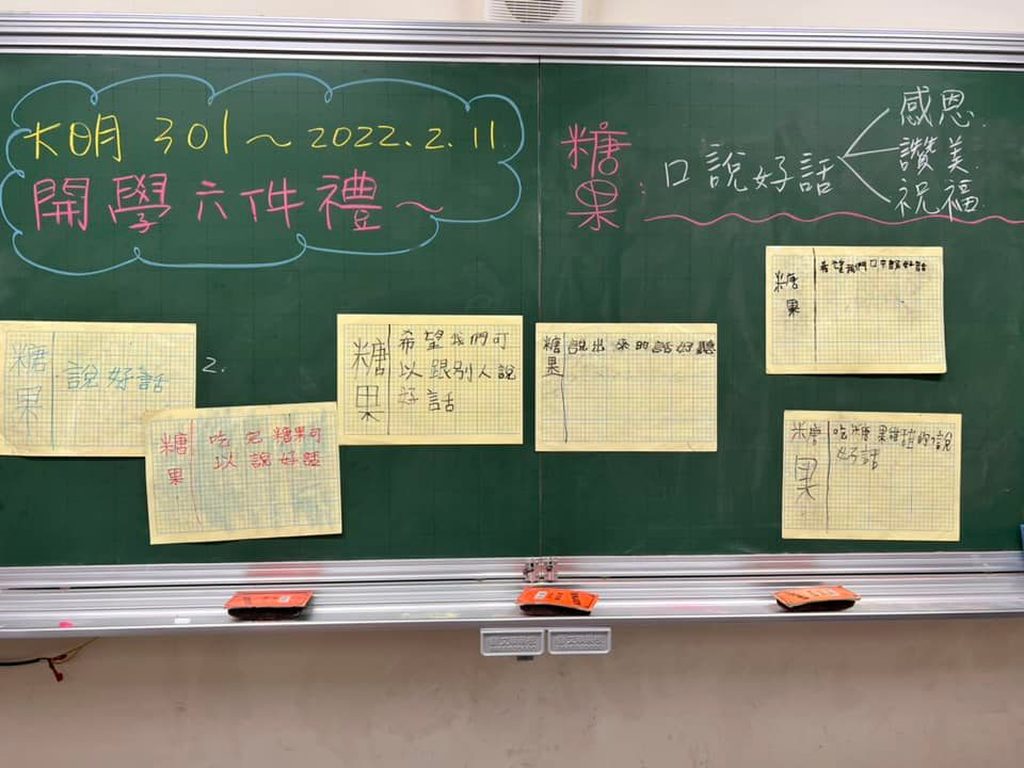 大明 301～2022.2.11.
開學六件禮～
糖果：口說好話
感恩.
讚美.
祝福.
糖果
說好話
2.
糖果
吃完糖果可
以說好話
糖果
希望我們可
以跟別人說
好話
糖果
說出來的話好聽
糖果
希望我們口中都好話
糖果
吃糖果
說
好話